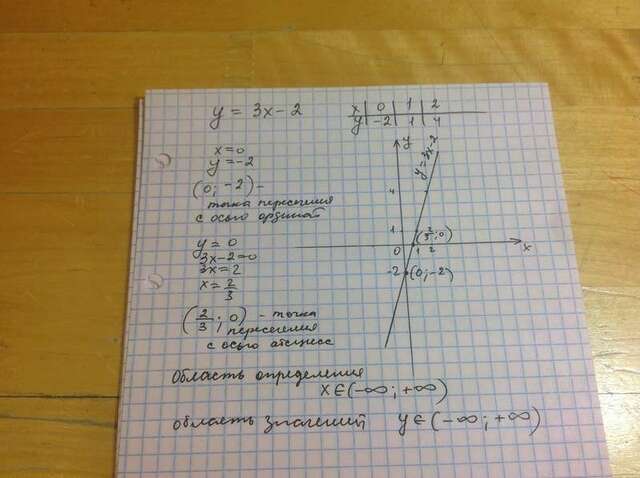 y = 3x - 2
x | 0 | 1 | 2
y | -2 | 1 | 4
x = 0
y = -2
(0; -2) -
точка пересечения
с осью ординат
y = 0
3x - 2 = 0
3x = 2
x = 2/3
(2/3; 0) - точка
пересечения
с осью абсцисс
y
y = 3x - 2
4
1
(2/3; 0)
0 1 2 x
-2 (0; -2)
Область определения
x ∈ (-∞; +∞)
область значений y ∈ (-∞; +∞)